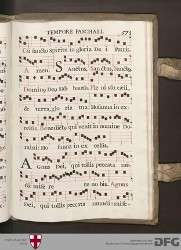 TEMPORE PASCHALI. 573
Cu sancto spiritu in gloria De i Patris.
A men. S Anctus, Sanctus, Sanctus,
Dominus Deus sab baoth. Ple ni sunt cœli,
& terra, glo ria tua. Hosanna in ex-
celsis. Benedictus qui venit in nomine Do-
mini. Ho sanna in ex celsis.
A Gnus De i, qui tollis peccata mun-
di: mise re re no bis. Agnus
Dei, qui tollis peccata mundi: mise-
DFG